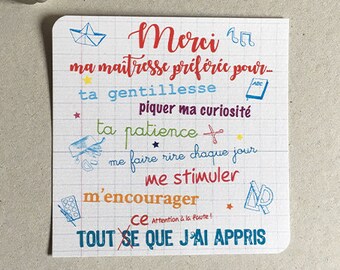 Merci
ma maîtresse préférée pour...
ta gentillesse
piquer ma curiosité
ta patience
me faire rire chaque jour
me stimuler
m'encourager
ce Attention à la faute !
TOUT SE QUE J'AI APPRIS